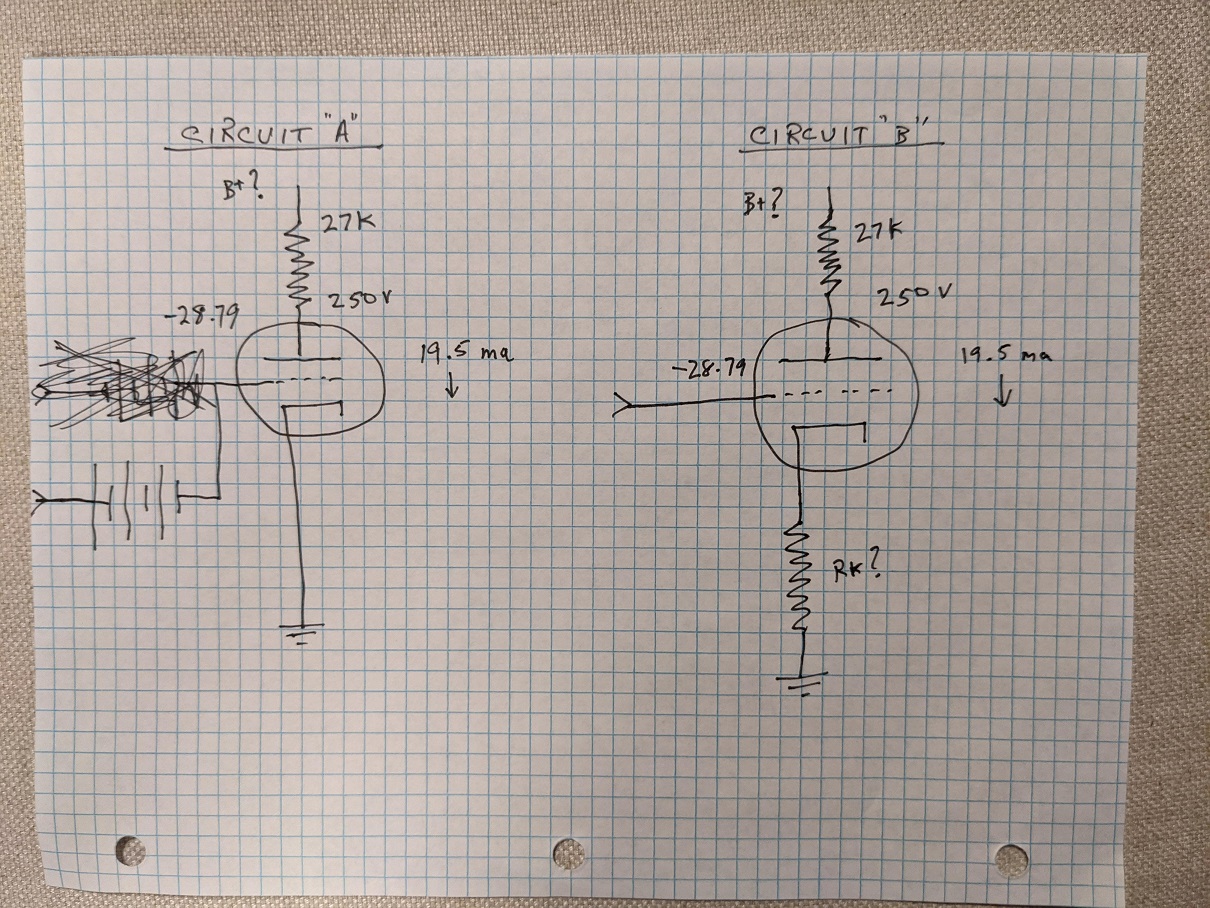 CIRCUIT "A"
B+?
27K
250V
-28.79
19.5 ma
CIRCUIT "B"
B+?
27K
250V
-28.79
19.5 ma
RK?